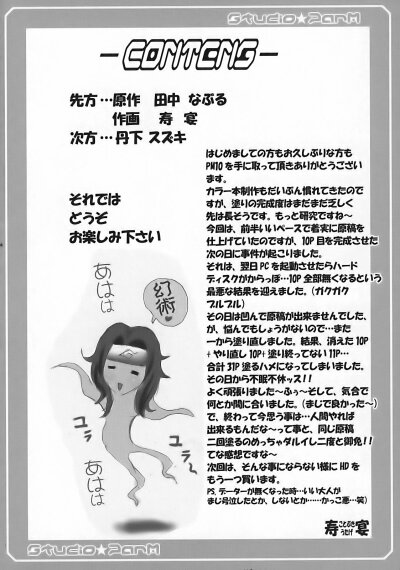 Studio★PanM
-CONTENS-
先方…原作　田中 なぶる
作画　寿　宴
次方…丹下 スズキ
それでは
どうぞ
お楽しみ下さい
はじめましての方もお久しぶりな方も
PM10を手に取って頂きありがとうござい
ます。
カラー本制作もだいぶん慣れてきたので
すが、塗りの完成度はまだまだ乏しく
先は長そうです。もっと研究ですね～
今回は、前半いいペースで着実に原稿を
仕上げていたのですが、10P目を完成させた
次の日に事件が起こりました。
それは、翌日PCを起動させたらハード
ディスクがからっぽ…10P全部無くなるという
最悪な結果を迎えました。(ガクガク
ブルブル)
その日は凹んで原稿が出来ませんでした
が、悩んでもしょうがないので…また
一から塗り直しました。結果、消えた10P
+やり直し10P+塗り終ってない11P…
合計31P塗るハメになってしまいました。
その日から不眠不休ッス!!
よく頑張りました～ふぅ～そして、気合で
何とか間に合いました。(まじで良かった～)
で、終わって今思う事は…人間やれば
出来るもんだな～って事と、同じ原稿
二回塗るのめっちゃダルイし二度と御免!!
てな感想ですな～
次回は、そんな事にならない様にHDを
もう一つ買います。
PS.データーが無くなった時…いい大人が
まじ号泣したとか、しないとか……かっこ悪…笑)
寿 ことぶき
宴 うたげ
幻術
あはは
ユラ
ユラ
あはは
Studio★PanM